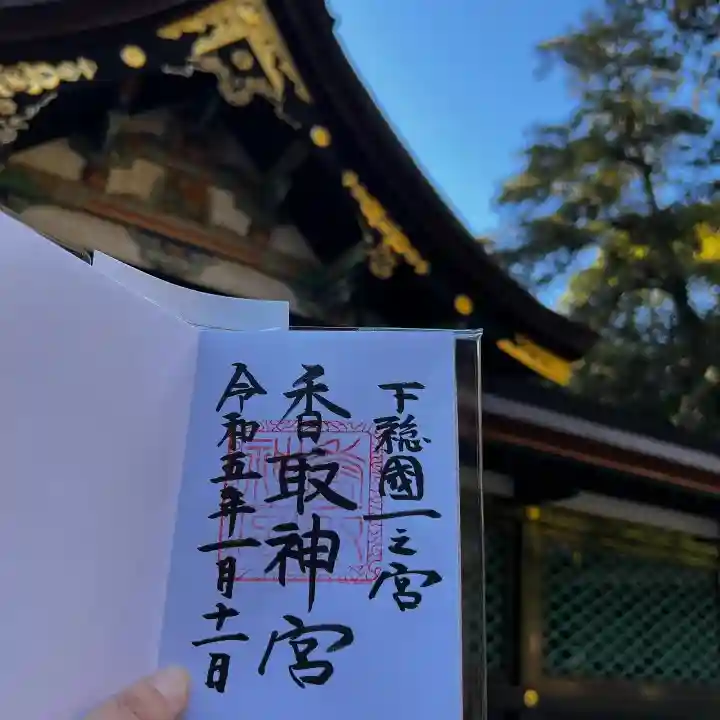 下總國一之宮
香取神宮
令和五年一月十一日